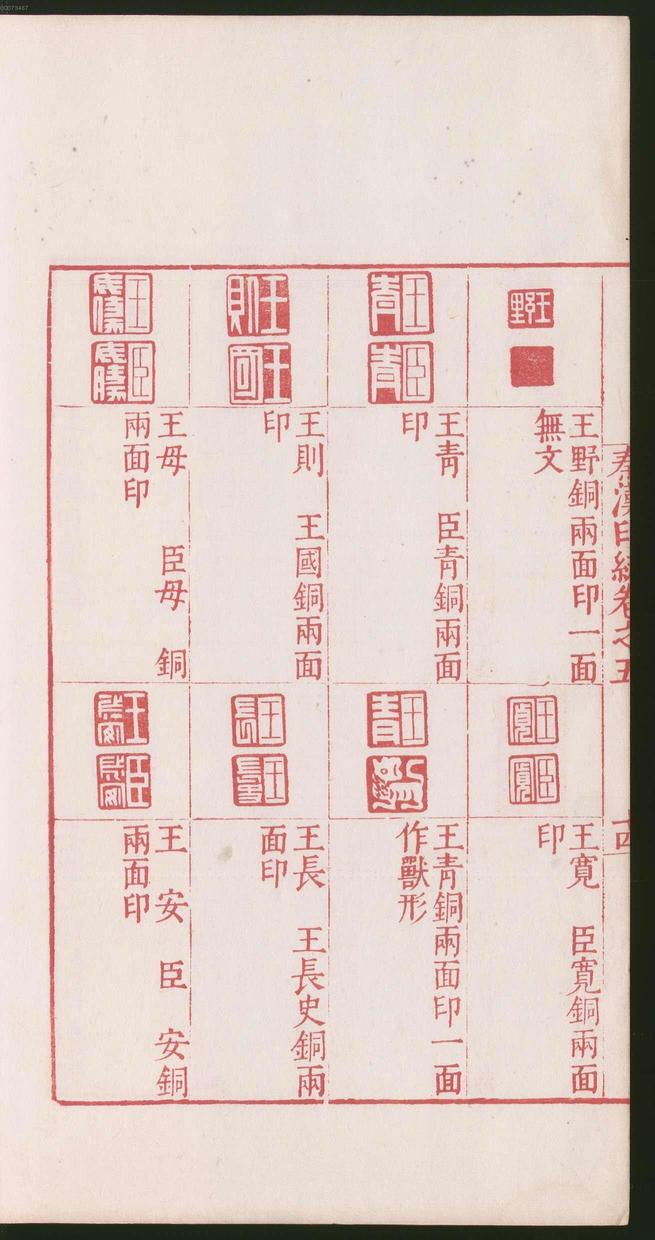 00073467
秦漢印統卷之五
十四
王野
王野銅兩面印一面
無文
王青
臣青
王青 臣青銅兩面
印
王則
王國
王則 王國銅兩面
印
王毋 臣毋 銅
兩面印
王寬
臣寬
王寬 臣寬銅兩面
印
王青
王青銅兩面印一面
作獸形
王長
王長 王長史銅兩
面印
王 安 臣 安銅
兩面印